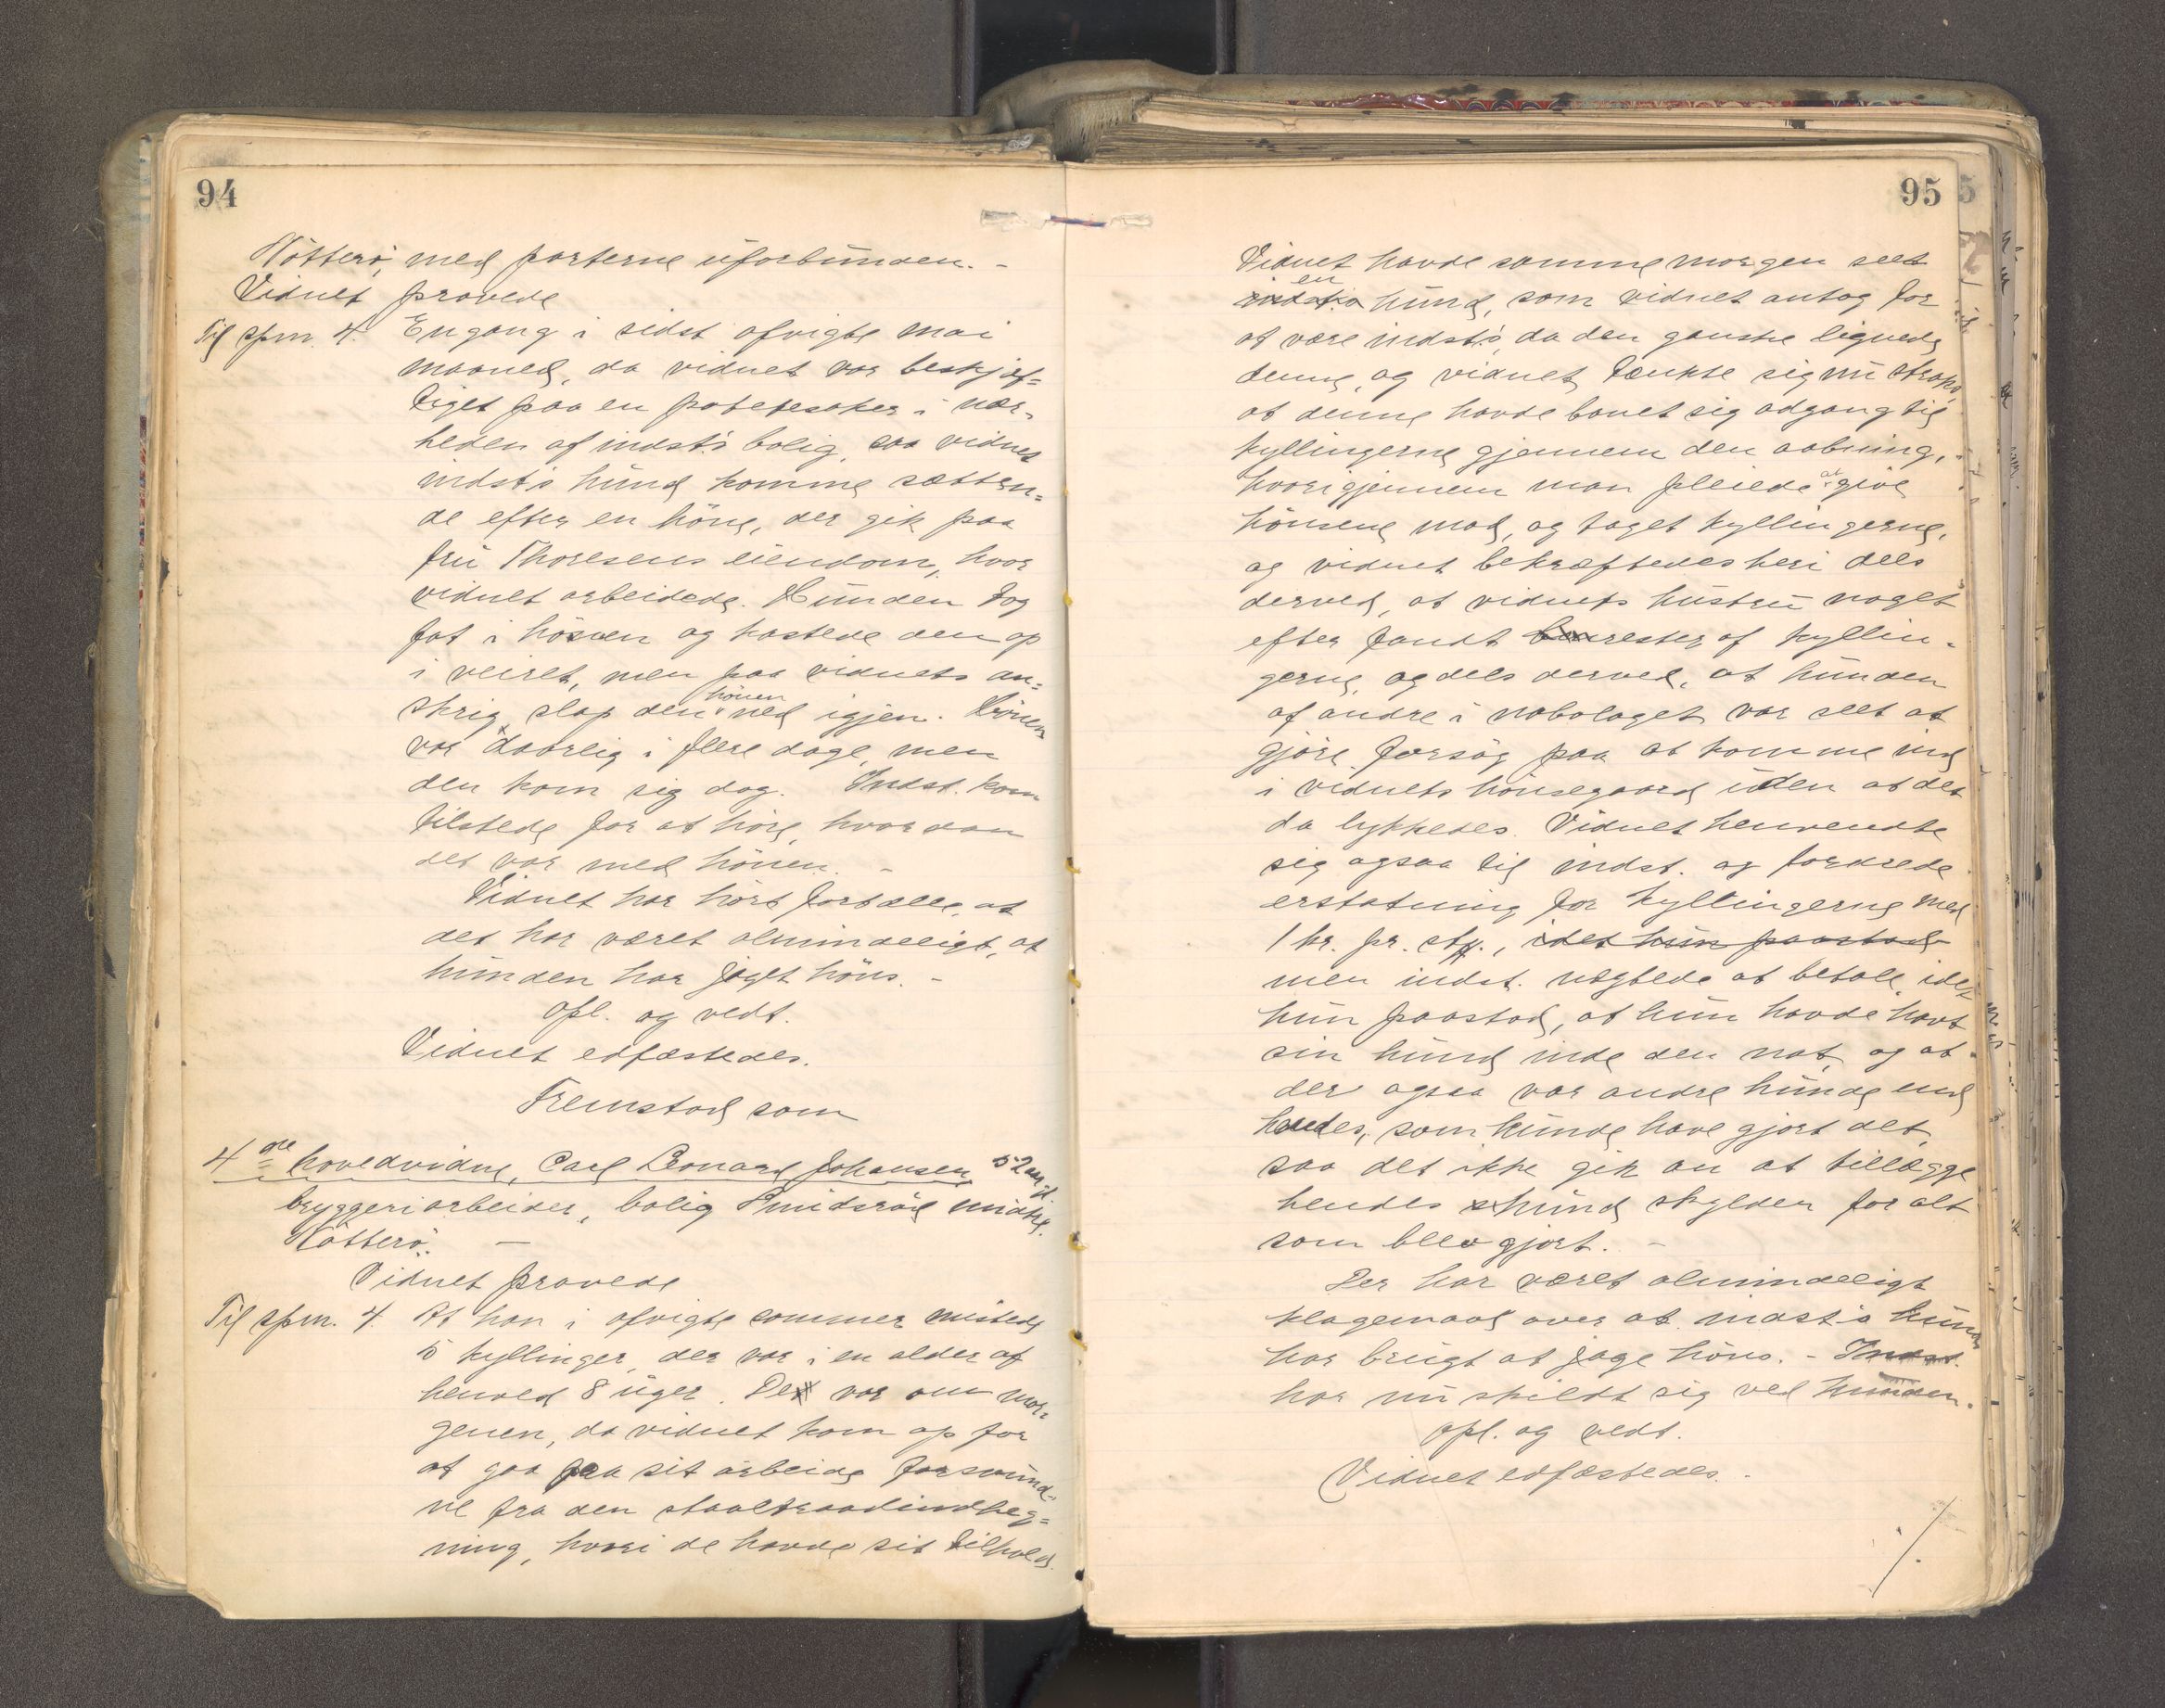 94
Nötterö, med parterne uforbunden. -
Vidnet provede
Til spm. 4. Engang i sidst afvigte mai
maaned, da vidnet var beskjæf=
tiget paa en potetesaker i nær-
heden af indst's bolig, saa vidnet
indst's hund komme sætten=
de efter en höne, der gik paa
fru Thoresens eiendom, hvor
vidnet arbeidede. Hunden tog
fat i hönen og kastede den op
i veiret, men paa vidnets an=
skrig slap den hönen ned igjen. Hönen
var daarlig i flere dage, men
den kom sig dog. Indst. kom
tilstede for at höre, hvordan
det var med hönen. -
Vidnet har hört fortælle, at
det har været almindeligt, at
hunden har jaget höns. -
Opl. og vedt.
Vidnet edfæstedes.
Fremstod som
4de hovedvidne, Carl Leonard Johansen, 52 aar gl.
bryggeriarbeider, bolig Smidsröd
Nötterö. -
Vidnet provede
Til spm. 4. At han i afvigte sommer mistede
5 kyllinger, der var i en alder af
henved 8 uger. De var om mor=
genen, da vidnet kom op for
at gaa paa sit arbeide forsvund-
ne fra den staaltraadindheg=
ning, hvori de havde sit tilhold.
95
Vidnet havde samme morgen seet
indst's en hund, som vidnet antog for
at være indst's, da den ganske lignede
denne, og vidnet tænkte sig nu straks,
at denne havde banet sig adgang til
kyllingerne gjennem den aabning,
hvorigjennem man pleiede at give
hönsene mad, og taget kyllingerne,
og vidnet bekræftedes heri dels
derved, at vidnets hustru noget
efter fandt rester af kyllin-
gerne, og dels derved, at hunden
af andre i nabolaget var seet at
gjöre forsög paa at komme ind
i vidnets hönsegaard uden at det
da lykkedes. Vidnet henvendte
sig ogsaa til indst. og fordrede
erstatning for kyllingerne med
1 kr. pr. stk., idet hun paastod
men indst. nægtede at betale, idet
hun paastod, at hun havde havt
sin hund inde den nat, og at
der ogsaa var andre hunde end
hendes, som kunde have gjort det,
saa det ikke gik an at tillægge
hendes hund skylden for alt
som blev gjort. -
Der har været almindeligt
klagemaal over at indst's hund
har brugt at jage höns. - Indst.
har nu skildt sig ved hunden.
Opl. og vedt.
Vidnet edfæstedes. -